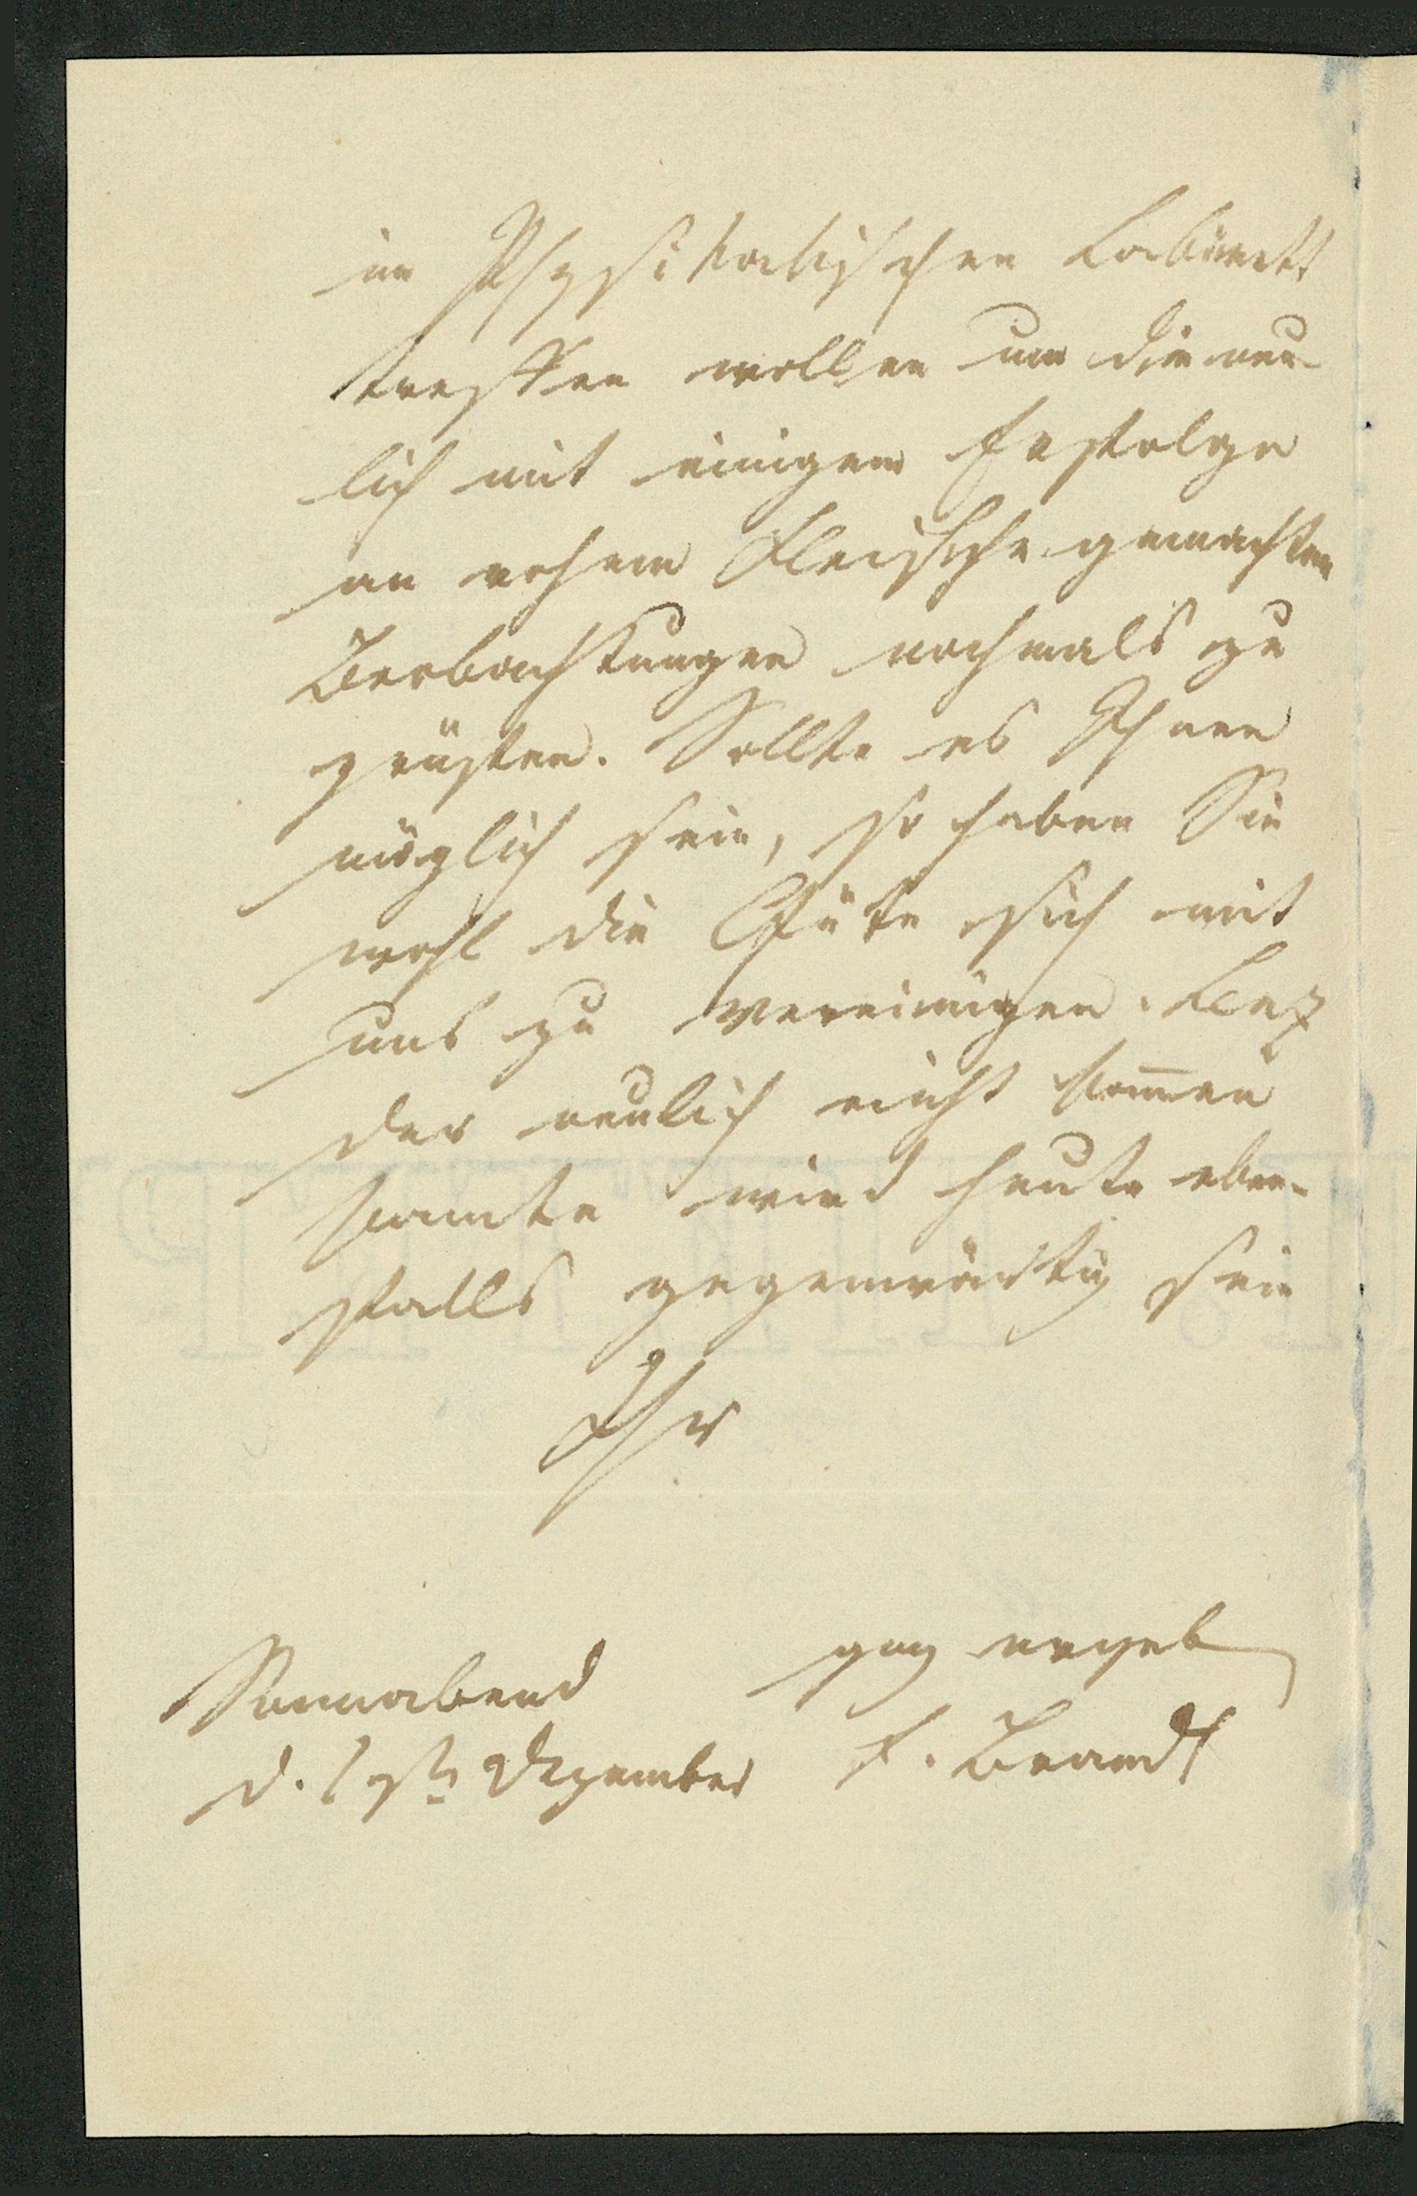 im Physikalischen Cabinett
treffen wollen um die neu-
lich mit einigem Erfolge
an rohem Fleische gemachten
Beobachtungen nochmals zu
prüfen. Sollte es Ihnen
möglich sein, so haben Sie
wohl die Güte sich mit
uns zu vereinigen. Lenz
der neulich nicht kom̄en
konnte wird heute eben-
falls gegenwärtig sein
Ihr
ganz ergeb
Sonnabend
F. Brandt
d. Dezember